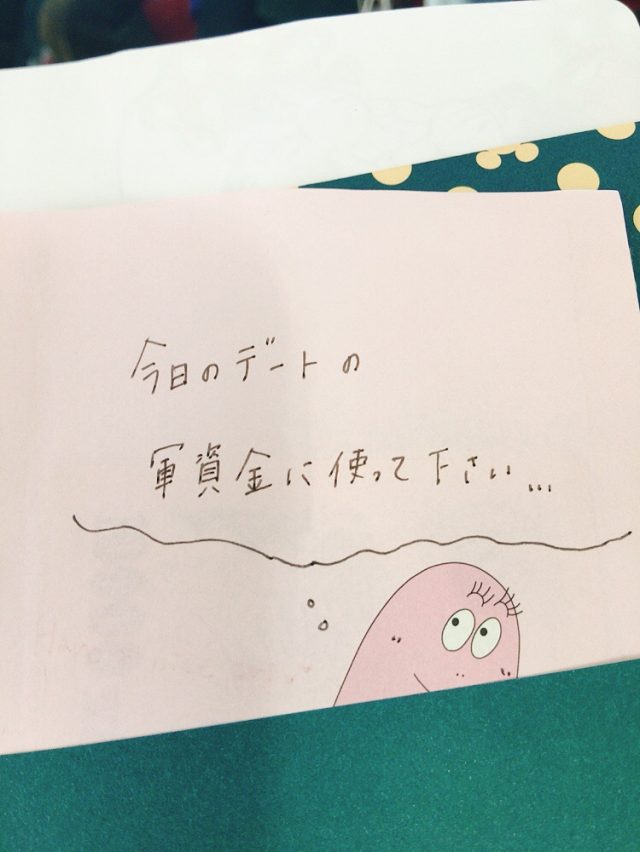 今日のデートの
軍資金に使って下さい...